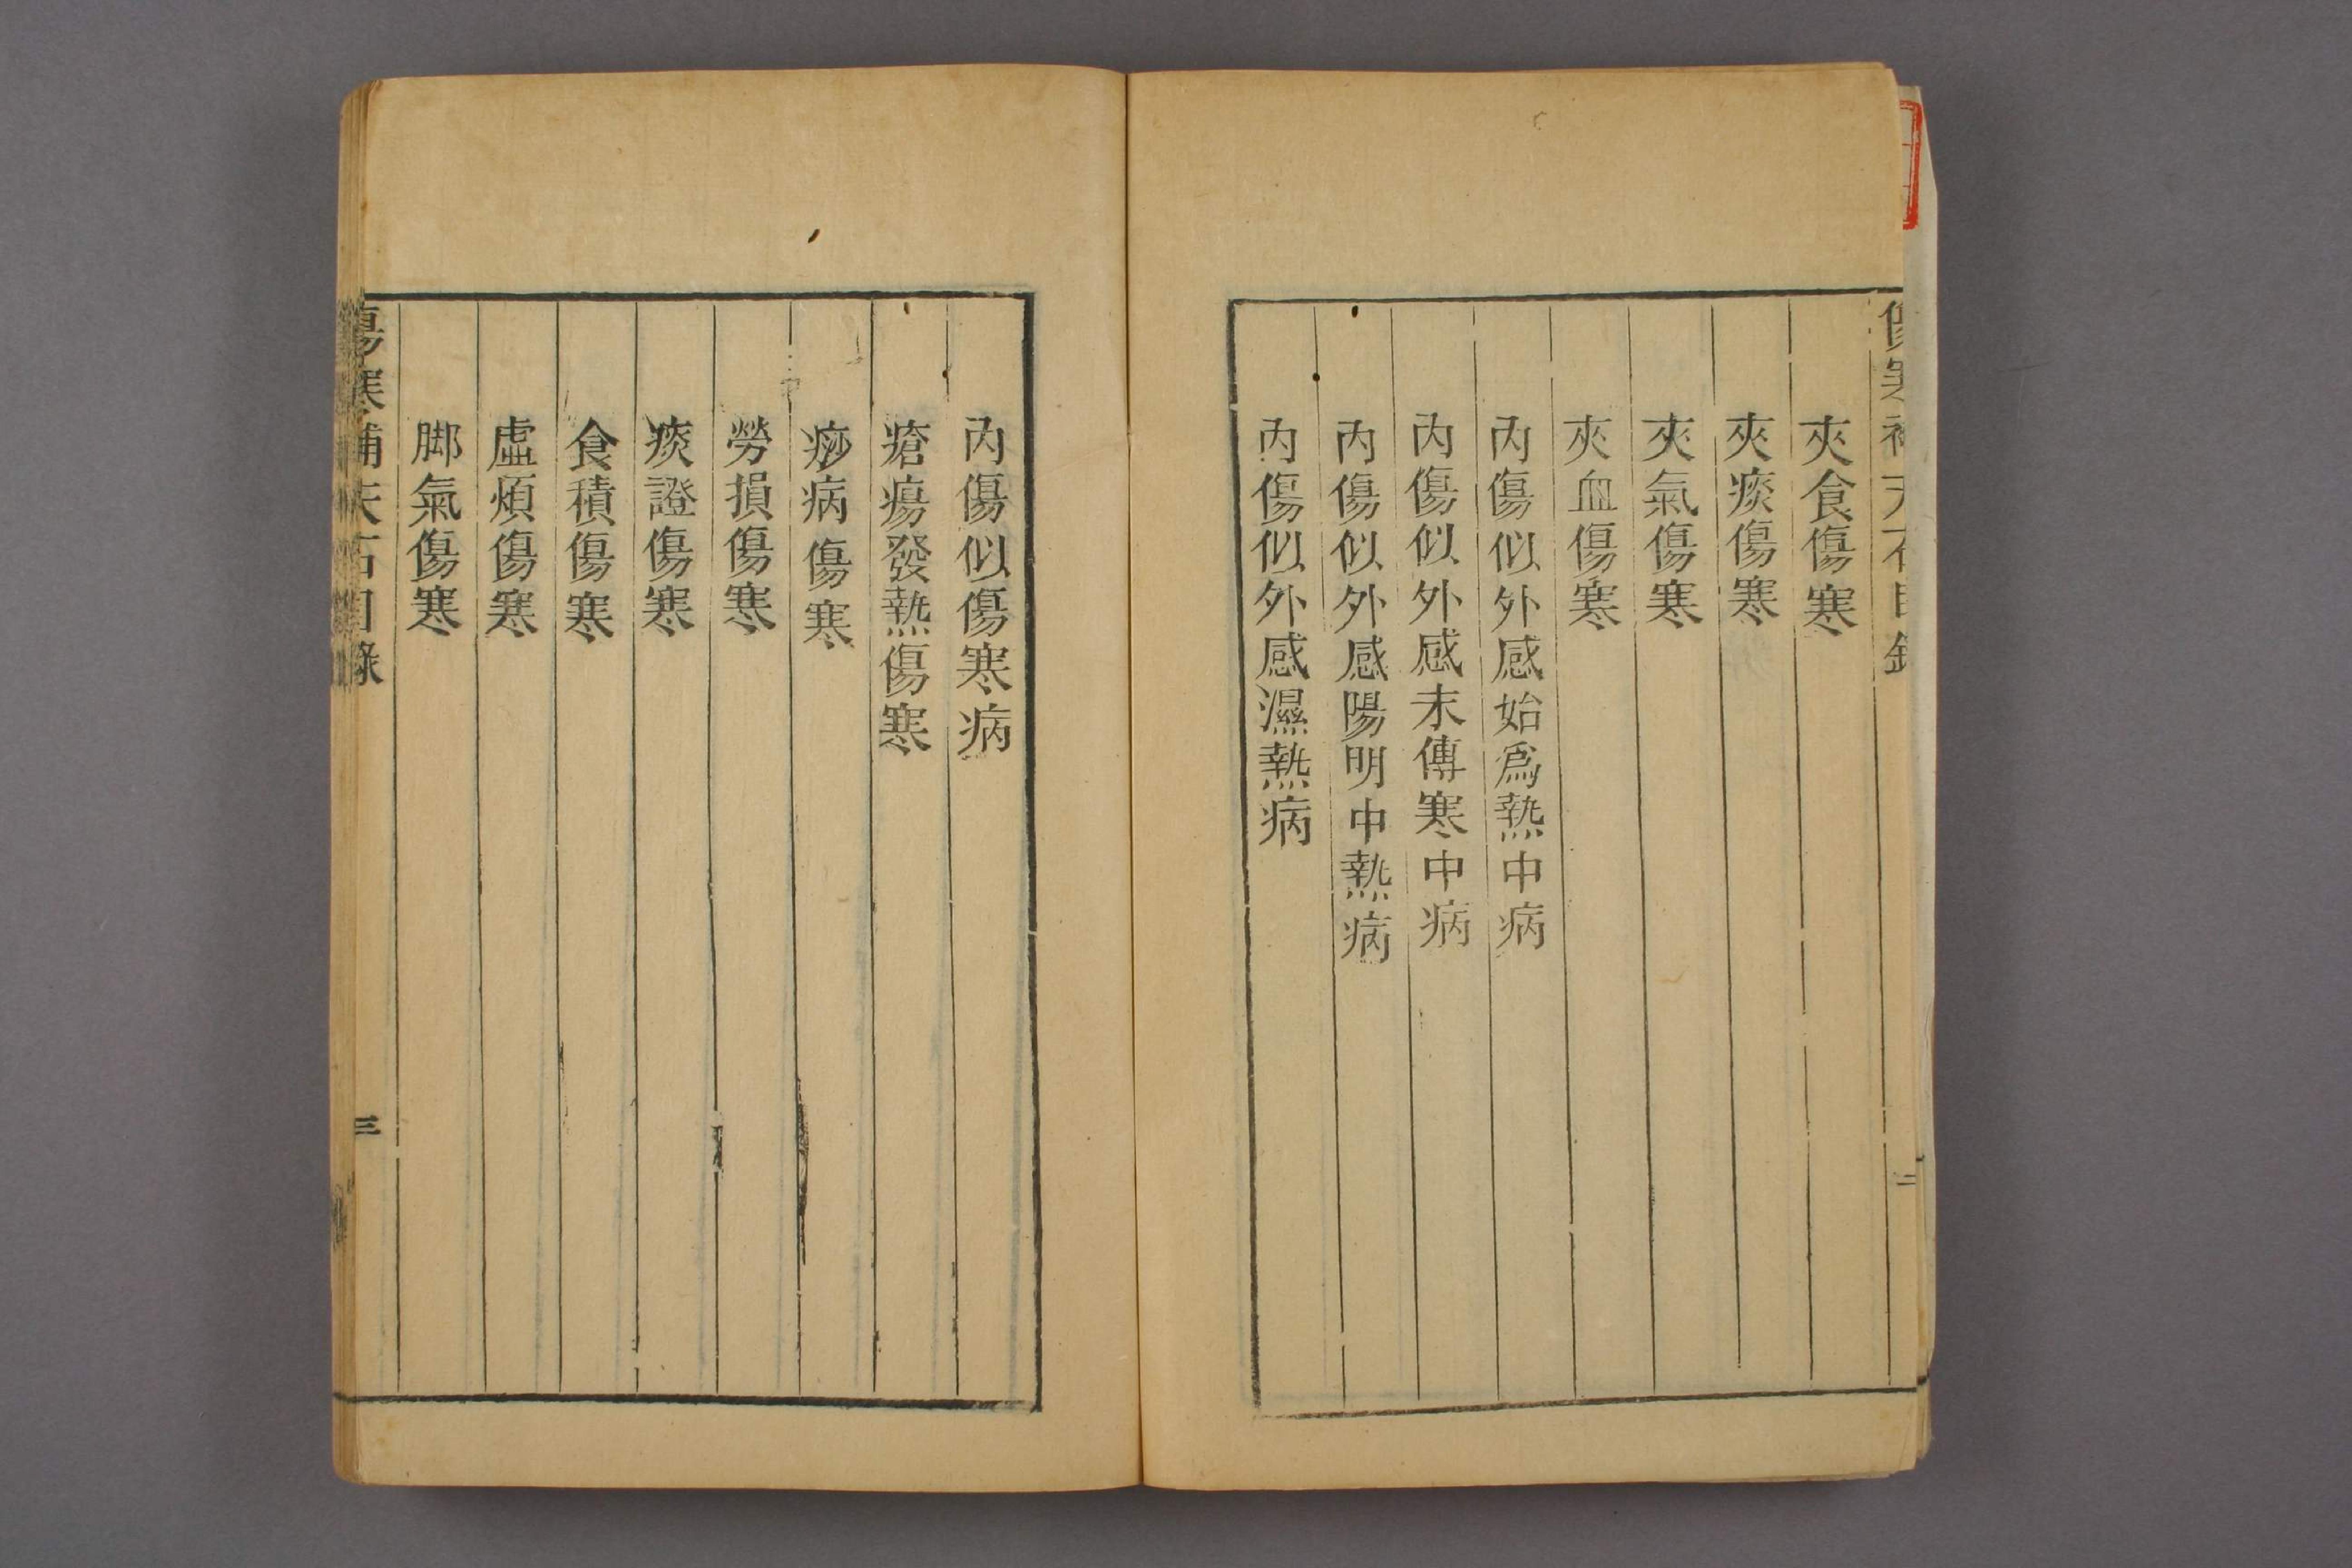 夾食傷寒
夾痰傷寒
夾氣傷寒
夾血傷寒
內傷似外感始爲熱中病
內傷似外感末傳寒中病
內傷似外感陽明中熱病
內傷似外感濕熱病
二
內傷似傷寒病
瘡瘍發熱傷寒
痧病傷寒
勞損傷寒
痰證傷寒
食積傷寒
虛煩傷寒
脚氣傷寒
傷寒補天石目錄
三